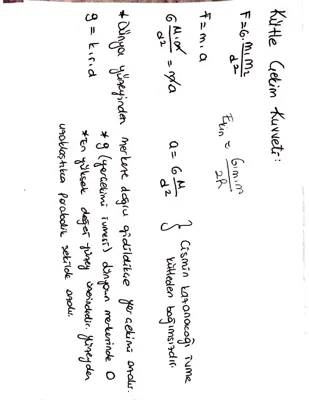 Kütle Çekim Kuvveti:
F=G.m₁m₂/d²
Ekin = G.m.m/2R
F=m.a
G M.m/d² = ma
a = G M/d²
} Cismin kazanacağı ivme kütleden bağımsızdır.
* Dünya yüzeyinden merkeze doğru gidildikçe yerçekimi azalır.
* g (yerçekimi ivmesi) dünyanın merkezinde 0
g = k.r.d
* En yüksek değer yüzey üzerindedir. Yüzeyden
uzaklaştıkça parabolik şekilde azalır.